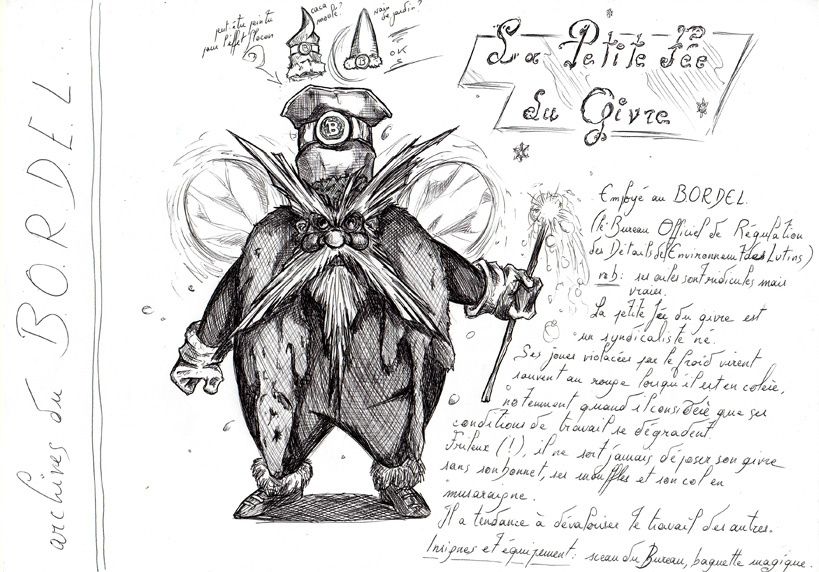 archives du B.O.R.D.E.L.
peut être peinte
pour l'effet flocon
casa
moule?
nain
de jardin?
OK
B
La Petite fée
du Givre
Employé au BORDEL.
(le Bureau Officiel de Régulation
des Détails de l'Environnement des Lutins)
nb: ses ailes sont ridicules mais
vraies.
La petite fée du givre est
un syndicaliste né.
Ses joues violacées par le froid virent
souvent au rouge lorsqu'il est en colère,
notemment quand il considère que ses
conditions de travail se dégradent.
Frileux (!), il ne sort jamais déposer son givre
sans son bonnet, ses mouffles et son col en
musaraigne.
Il a tendance à dévaloriser le travail des autres.
Insignes et équipement: sceau du Bureau, baguette magique.